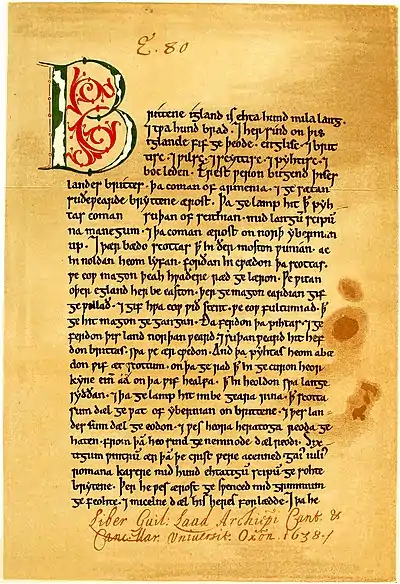 E. 80
Brittene igland is ehta hund mila lang.
⁊ tƿa hund brad. ⁊ her sind on þis
iglande fif geþeode. englisc. ⁊ brit
tisc. ⁊ ƿilsc. ⁊ scyttisc. ⁊ pyhtisc. ⁊
boc leden. Erest ƿeron bugend þises
landes brittes. þa coman of armenia. ⁊ gesatan
suðeƿearde bryttene ærost. Þa gelamp hit ꝥ pyh
tas coman suþan of scithian. mid langū scipū
na manegum. ⁊ þa coman ærost on norþ ybernian
up. ⁊ þær bædo scottas ꝥ hi ðer moston ƿunian. ac
hi noldan heom lyfan. forðan hi cƿædon þa scottas.
ƿe eoƿ magon þeah hƿaðere ræd gelæron. Ƿe ƿitan
oþer egland her be easton. þer ge magon eardian gif
ge ƿillað. ⁊ gif hƿa eoƿ ƿið stent. ƿe eoƿ fultumiað. ꝥ
ge hit magon gegangan. Ða ferdon þa pihtas. ⁊ ge
ferdon þis land norþan ƿeard. ⁊ suþan ƿeard hit hef
don brittas. sƿa ƿe ær cƿedon. And þa pyhtas heom abæ
don ƿif æt scottum. on þa gerad ꝥ hi gecuron heor
kyne cin aa on þa ƿif healfa. ꝥ hi heoldon sƿa lange
syððan. ⁊ þa gelamp hit imbe geara rina. ꝥ scotta
sum dæl geƿat of ybernian on brittene. ⁊ þes lan
des sum dæl geeodon. ⁊ ƿes heora heratoga reoda ge
haten. from þā heo sind genemnode dæl reodi. Six
tigum ƿintrū ær þā þe crist ƿere acenned gaiꝰ iuliꝰ
romana kasere mid hund ehtatigū scipū gesohte
brytene. Þer he ƿes ærost gesƿenced mid grimmum
gefeohte. ⁊ micelne dæl his heres forlædde. ⁊ þa he
Liber Guil: Laud Archiepi Cant. &
Cancellar. Universit. Oxon. 1638.